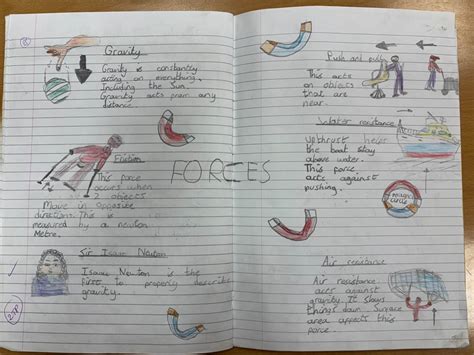 Gravity
Gravity is constantly
acting on everything,
Including the Sun.
Gravity acts from any
distance.
Friction
This force
occurs when
2 objects
Move in opposite
directions. This is
measured by a newton
Metre.
Sir Isaac Newton
Isaac Newton is the
first to properly describe
gravity.
FORCES
Push and pull
This acts
on objects
that are
near.
Water resistance
Upthrust helps
the boat stay
above water.
This force
acts against
pushing.
Air resistance
Air resistance
acts against
gravity. It slows
things down. Surface
area affect this
force